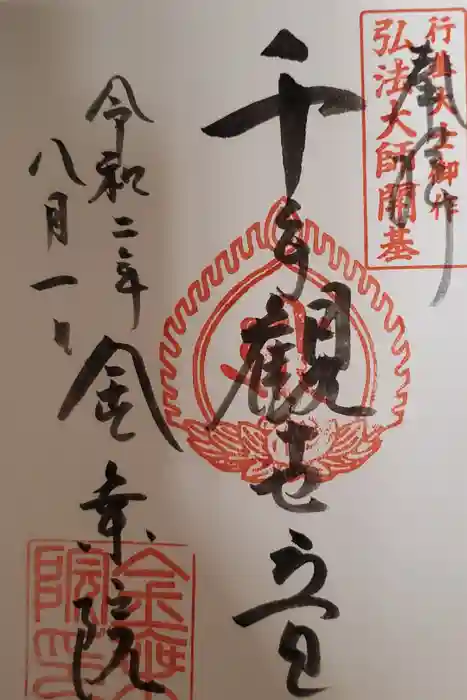 奉拝
行基大士御作
弘法大師開基
千手観世音
令和二年
八月一日
金乗院